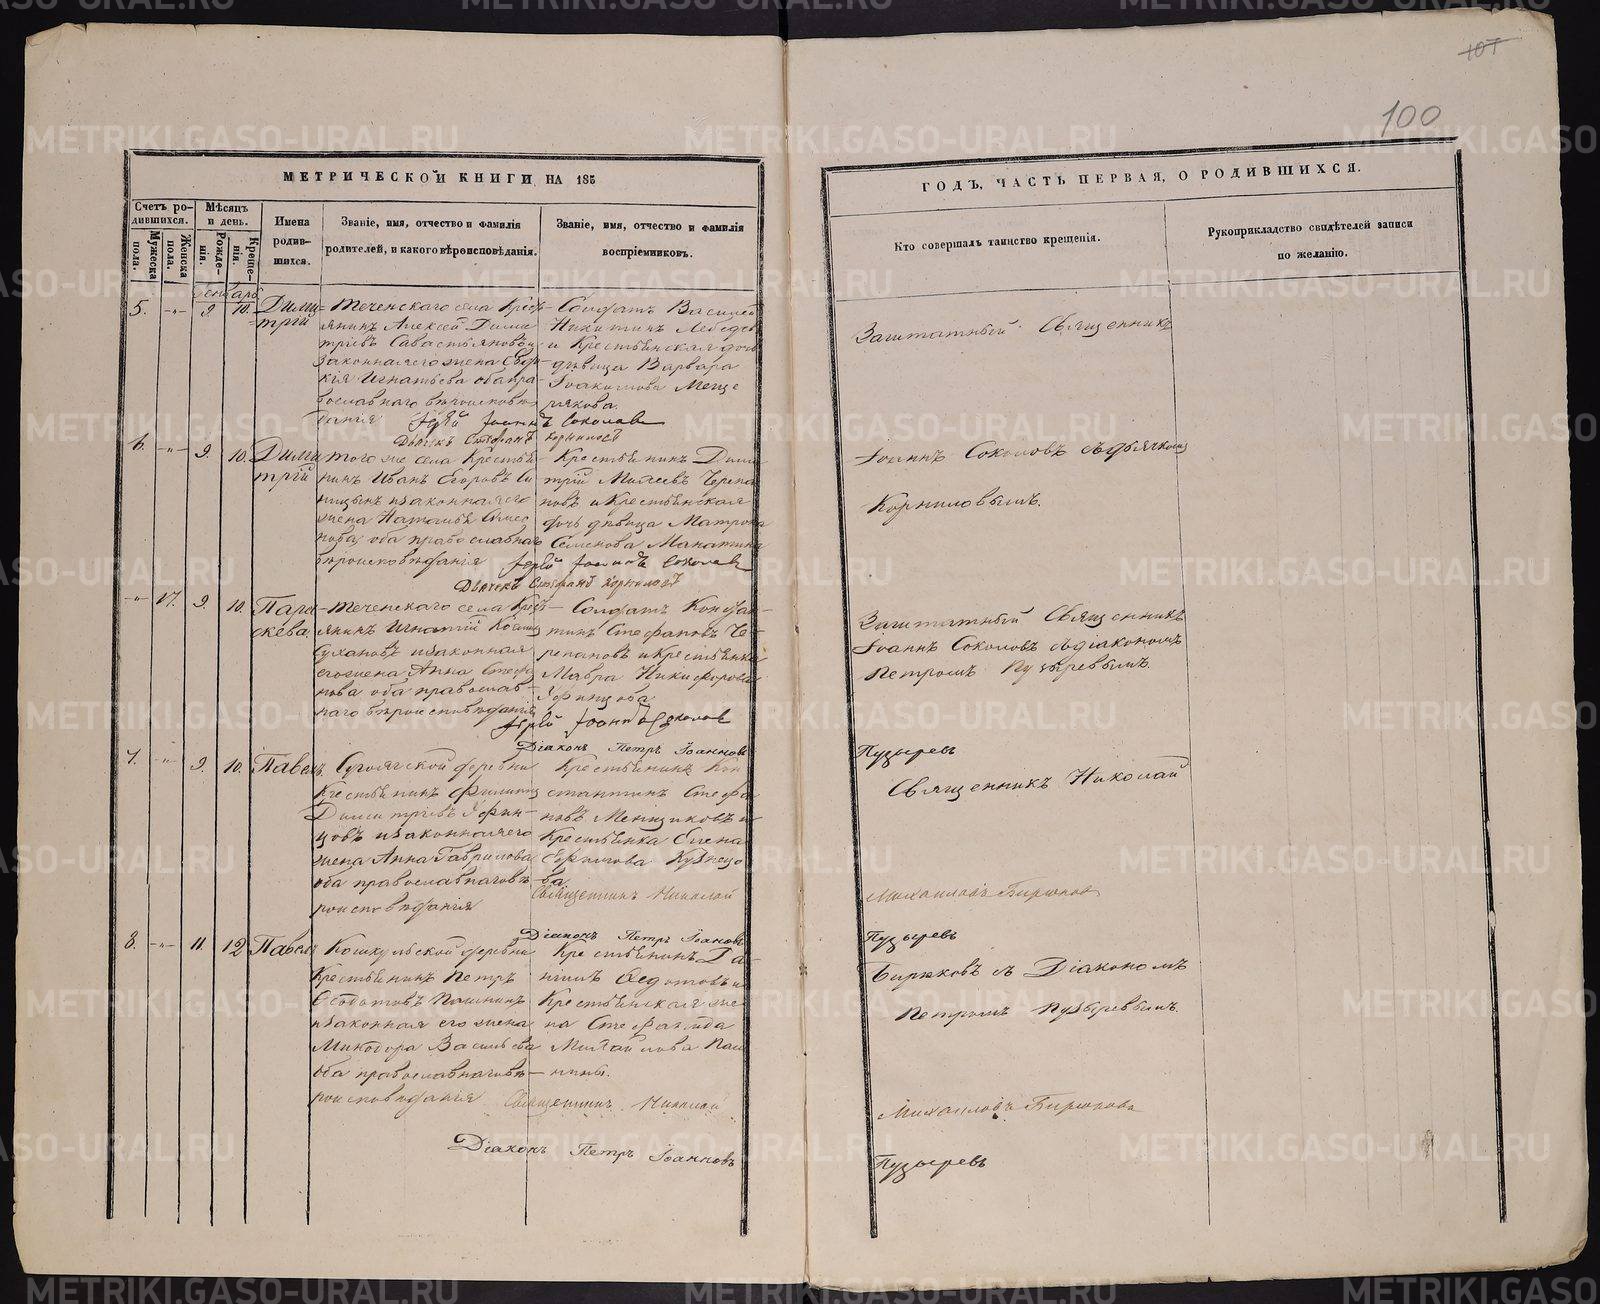 107
100
МЕТРИЧЕСКОЙ КНИГИ НА 185
ГОДЪ, ЧАСТЬ ПЕРВАЯ, О РОДИВШИХСЯ.
Счетъ ро-
дившихся.
Мужеска
пола.
Женска
пола.
Мѣсяцъ
и день.
Рожде-
нія.
Креще-
нія.
Имена
родив-
шихся.
Званіе, имя, отчество и фамилія
родителей, и какого вѣроисповѣданія.
Званіе, имя, отчество и фамилія
воспріемниковъ.
Кто совершалъ таинство крещенія.
Рукоприкладство свидѣтелей записи
по желанію.
5. 9 10.
Дими-
трій
Теченскаго села Крест
янинъ Алексей Дими
тріевъ Савастьяновъ и
законная его жена
кія Игнатьева оба пра-
вославнаго вѣроисповѣ
данія
Солдатъ Василей
Никитинъ Лебедевъ
и Крестьянская дочь
дѣвица Варвара
Іоакимова Меще
рякова.
Іерей Іоаннъ Соколовъ
Дьячекъ Стефанъ Корниловъ
Заштатный Священникъ
6. 9. 10.
Дими
трій
того же села Крестья
нинъ Иванъ Егоровъ Си
ницынъ и законная его
жена Наталья
оба православнаго
вѣроисповѣданія
Крестьянинъ Дими
трій Черепа
новъ и Крестьянская
дочь дѣвица Матрона
Семенова
Іерей Іоаннъ Соколовъ
Дьячекъ Стефанъ Корниловъ
Іоаннъ Соколовъ съ дьячкомъ
Корниловымъ.
17. 9. 10.
Пара
скева
Теченскаго села Крест
янинъ Игнатій
Сухановъ и законная
его жена Анна Стефа
нова оба православ-
наго вѣроисповѣданія
Солдатъ Констан-
тинъ Стефановъ Че-
репановъ и Крестьянка
Мавра Никифорова
Уфинцова
Іерей Іоаннъ Соколовъ
Діаконъ Петръ Іоанновъ
Заштатный Священникъ
Іоаннъ Соколовъ съ діакономъ
Петромъ Пузыревымъ.
Пузыревъ
7. 9. 10.
Павелъ
деревни
Крестьянинъ Филиппъ
Димитріевъ Уфин-
цовъ и законная его
жена Анна Гаврилова
оба православнаго вѣ
роисповѣданія
Крестьянинъ Кон
стантинъ Стефа
новъ Менщиковъ и
Крестьянка Елена
Кузнецо
ва
Священникъ Николай
Діаконъ Петръ Іоанновъ
Священникъ Николай
Михаиловъ Бирюковъ
Пузыревъ
8. 11. 12
Павелъ
Кошкульской деревни
Крестьянинъ Петръ
Ѳедотовъ Пашнинъ
и законная его жена
Минодора Васильева
оба православнаго вѣ-
роисповѣданія
Крестьянинъ Да-
ніилъ Ѳедотовъ и
Крестьянская же
на Стефанида
Михайлова Паш
нины.
Священникъ Николай
Діаконъ Петръ Іоанновъ
Бирюковъ съ Діакономъ
Петромъ Пузыревымъ.
Михаиловъ Бирюковъ
Пузыревъ
METRIKI.GASO-URAL.RU